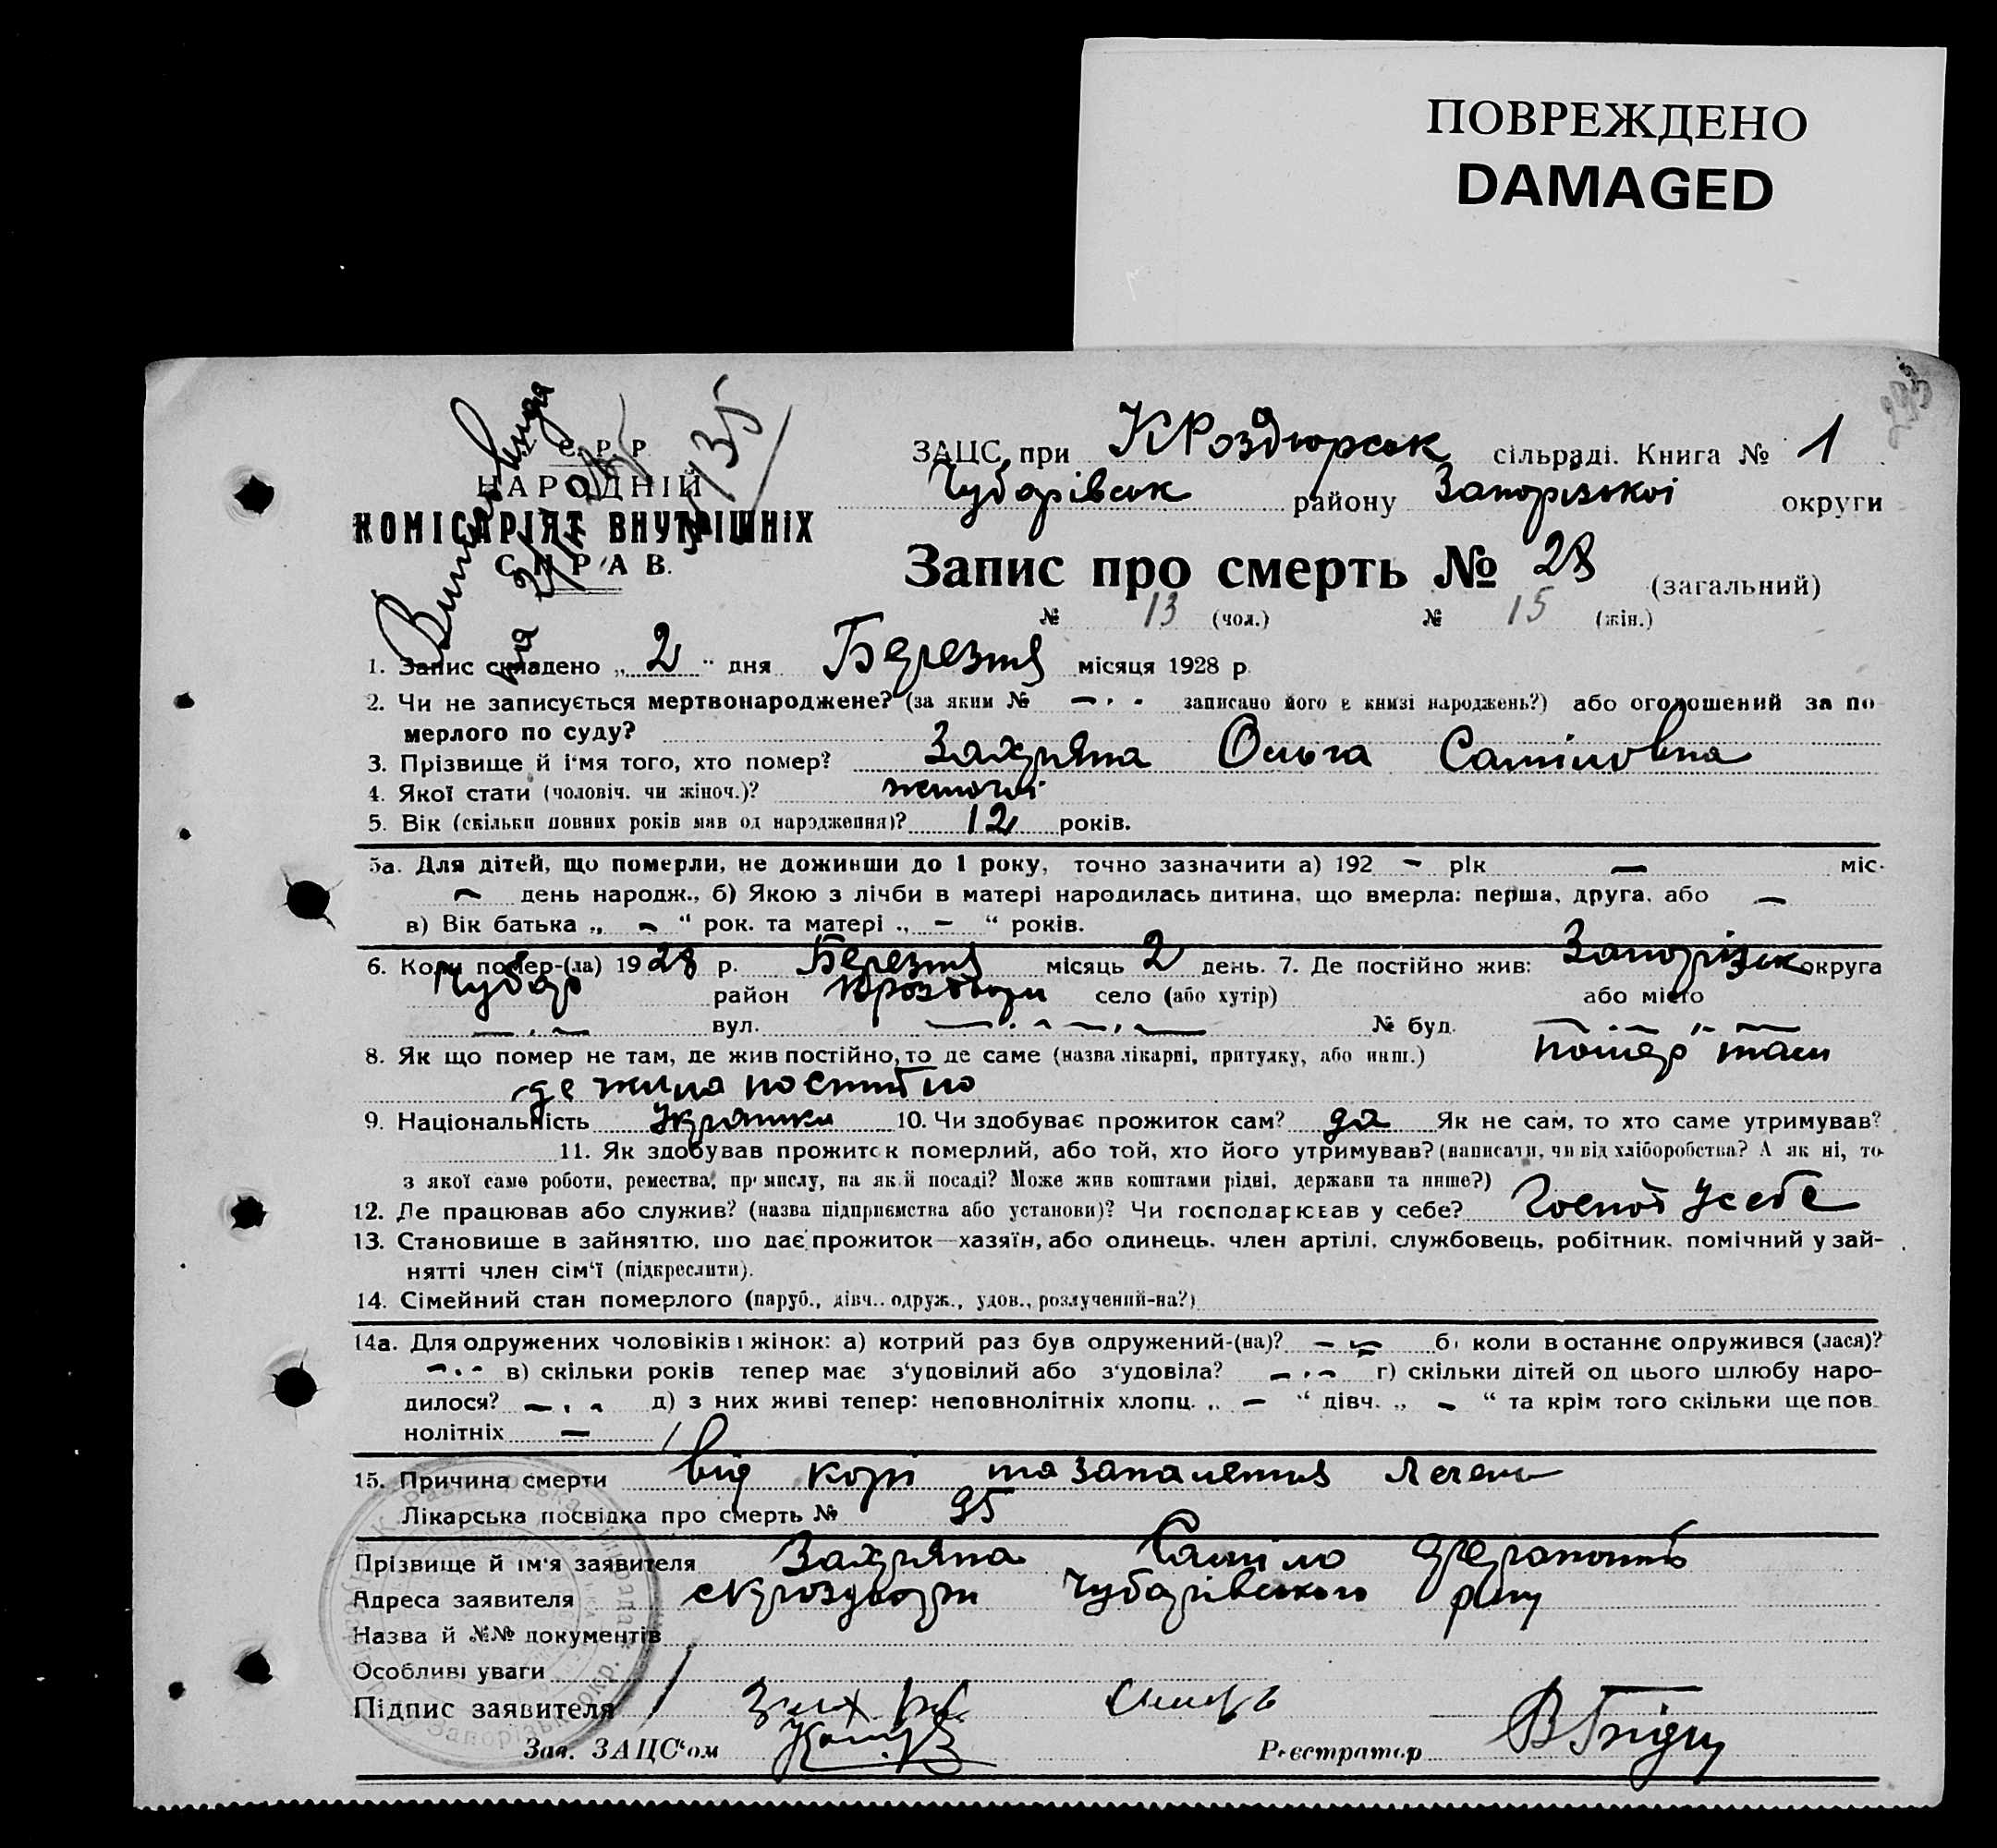 ПОВРЕЖДЕНО
DAMAGED
С. Р. Р
НАРОДНІЙ
КОМІСАРІЯТ ВНУТРІШНІХ
СПРАВ.
ЗАЦС при КРоздорськ сільраді. Книга № 1
Чубарівськ району Запорізької округи
Запис про смерть № 28 (загальний)
№ 13 (чол.) № 15 (жін.)
1. Запис складено „ 2 " дня Березня місяця 1928 р.
2. Чи не записується мертвонароджене? (за яким № — записано його в книзі народжень?) або оголошений за по
мерлого по суду?
3. Прізвище й ім'я того, хто помер? Ольга
4. Якої стати (чоловіч. чи жіноч.)? жіночої
5. Вік (скільки повних років мав од народження)? 12 років.
5а. Для дітей, що померли, не доживши до 1 року, точно зазначити а) 192 — рік — міс.
— день народж., б) Якою з лічби в матері народилась дитина, що вмерла: перша, друга, або —
в) Вік батька „ — " рок. та матері „ — " років.
6. Коли помер-(ла) 1928 р. Березня місяць 2 день. 7. Де постійно жив: Запорізьк округа
Чубар район село (або хутір) або місто
— вул. — № буд. —
8. Як що помер не там, де жив постійно, то де саме (назва лікарні, притулку, або инш.) помер там
де жила постійно
9. Національність Українка 10. Чи здобуває прожиток сам? да Як не сам, то хто саме утримував?
11. Як здобував прожиток померлий, або той, хто його утримував? (написати, чи від хліборобства? А як ні, то
з якої само роботи, ремества, промислу, на якій посаді? Може жив коштами рідні, держави та инше?)
12. Де працював або служив? (назва підприємства або установи)? Чи господарював у себе? Господ у себе
13. Становище в зайняттю, що дає прожиток—хазяїн, або одинець, член артілі, службовець, робітник, помічний у зай-
нятті член сім'ї (підкреслити).
14. Сімейний стан померлого (паруб., дівч.. одруж., удов., розлучений-на?)
14а. Для одружених чоловіків і жінок: а) котрий раз був одружений-(на)? — б) коли востаннє одружився (лася)?
— в) скільки років тепер має з'удовілий або з'удовіла? — г) скільки дітей од цього шлюбу наро-
дилося? — д) з них живі тепер: неповнолітніх хлопц. „ — " дівч. „ — " та крім того скільки ще пов
нолітніх —
15. Причина смерти від корі та запалення легень
Лікарська посвідка про смерть № 95
Прізвище й ім'я заявителя
Адреса заявителя Чубарівського р-ну
Назва й №№ документів
Особливі уваги
Підпис заявителя
Зав. ЗАЦС'ом Реєстратор